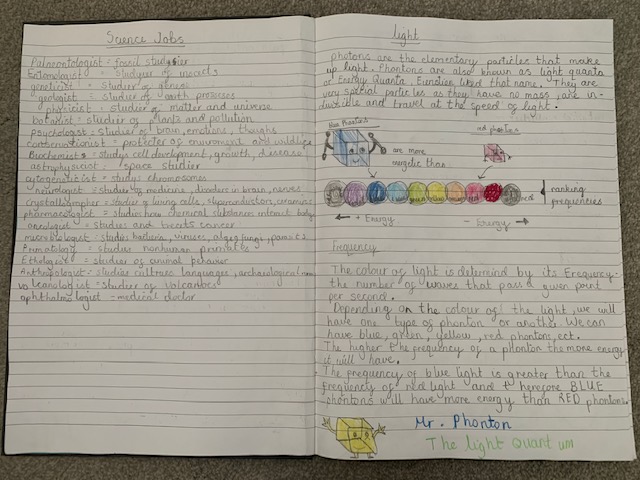 Science Jobs
Palaeontologist = fossil studier
Entomologist = studyer of insects
geneticist = studier of genes
geologist = studie of earth processes
physicist = studier of matter and universe
botanist = studier of plants and pollution
psychologist = studier of brain, emotions, thoughs
conservationist = protecter of enviroment and wildlife
Biochemist = studys cell development, growth, disease
astrophysicist = space studier
cytogeneticist = studys chromosomes
neurologist = studier of medicine, disorders in brain, nerves
crystallographer = studie of living cells, superconductors, ceramics
pharmacologist = studies how chemical substances interact body
oncologist = studies and treats cancer
microbiologist = studies bacteria, viruses, algee fungi, parasites
Primatology = studies nonhuman primates
Ethologist = studier of animal behavior
Anthropologist = studies cultures languages, archaeological
volcanologist = studier of volcanoes
ophthalmologist - medical doctor
light
Photons are the elementary particles that make
up light. Phontons are also known as light quanta
or Energy Quanta. Einstien liked that name. They are
very special particles as they have no mass, are in-
divisible and travel at the speed of light.
Blue Phontons
red phontons
are more
energetic than
ranking
frequencies
← + Energy
- Energy →
Frequency
The colour of light is determind by its Frequency-
the number of waves that pass a given point
per second.
Depending on the colour of the light, we will
have one type of phonton or another. We can
have blue, green, yellow, red phontons, ect.
The higher the frequency of a phonton the more energy
it will have.
The frequency of blue light is greater than the
frequency of red light and therefore BLUE
phontons will have more energy than RED phontons.
Mr. Phonton
The light Quantum